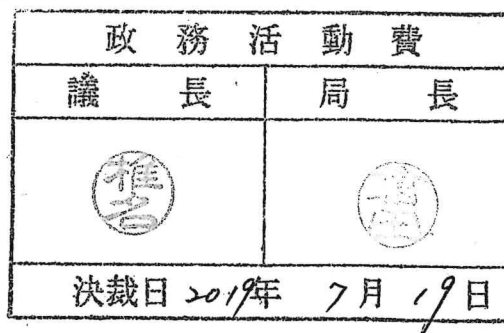 政務活動費
議長 局長
椎名
決裁日 2019年 7月 19日